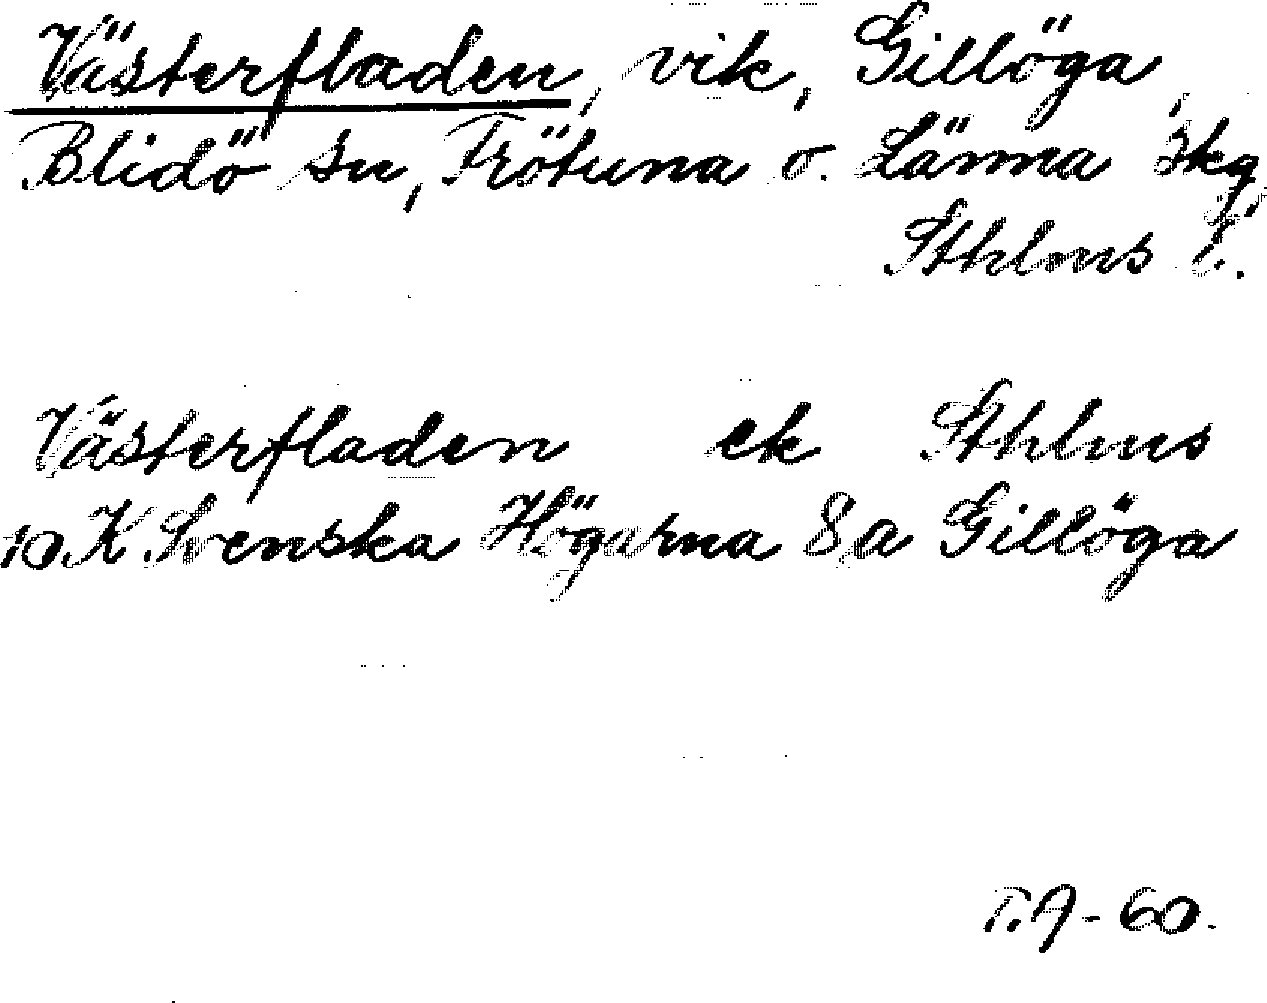 Västerfladen, vik, Gillöga,
Blidö sn, Frötuna o. Länna skg,
Sthlms l.
Västerfladen ek Sthlms
10 K Svenska Högarna 8a Gillöga
T.A-60.